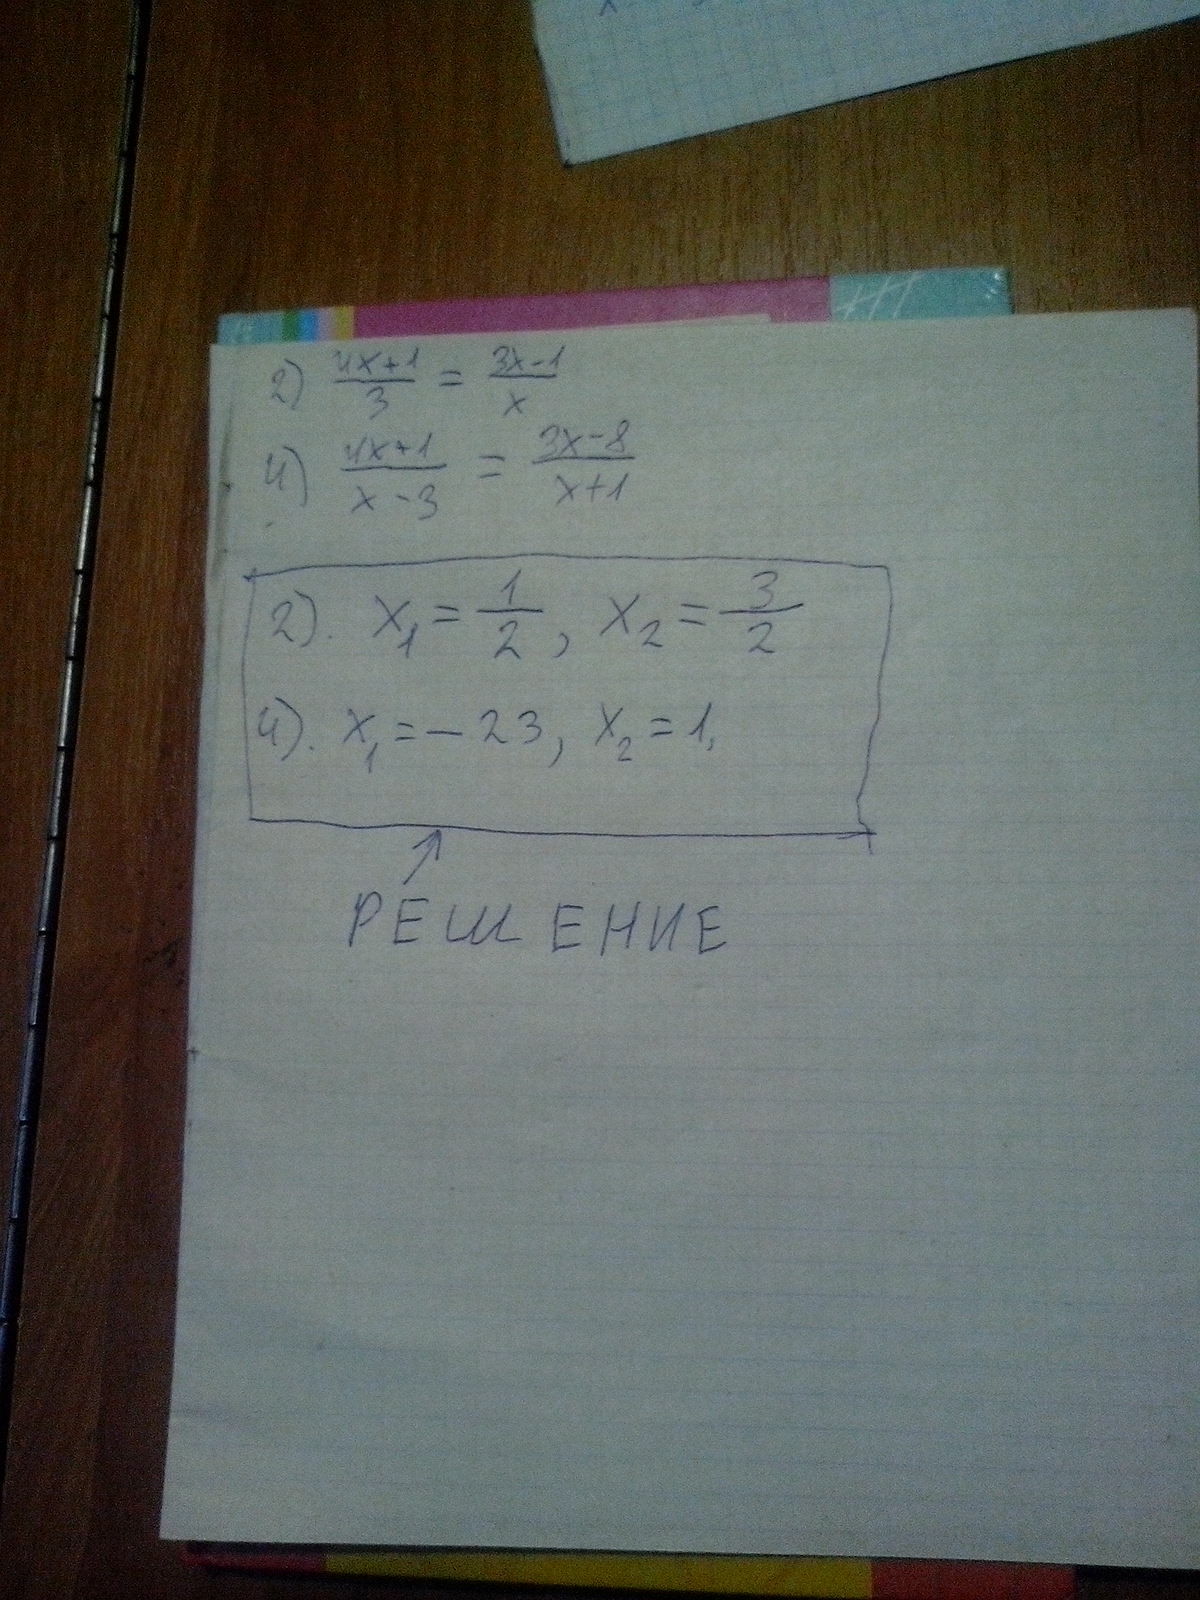 2) 4x+1/3 = 3x-1/x
4) 4x+1/x-3 = 3x-8/x+1
2). x₁ = 1/2, x₂ = 3/2
4). x₁ = -23, x₂ = 1,
РЕШЕНИЕ